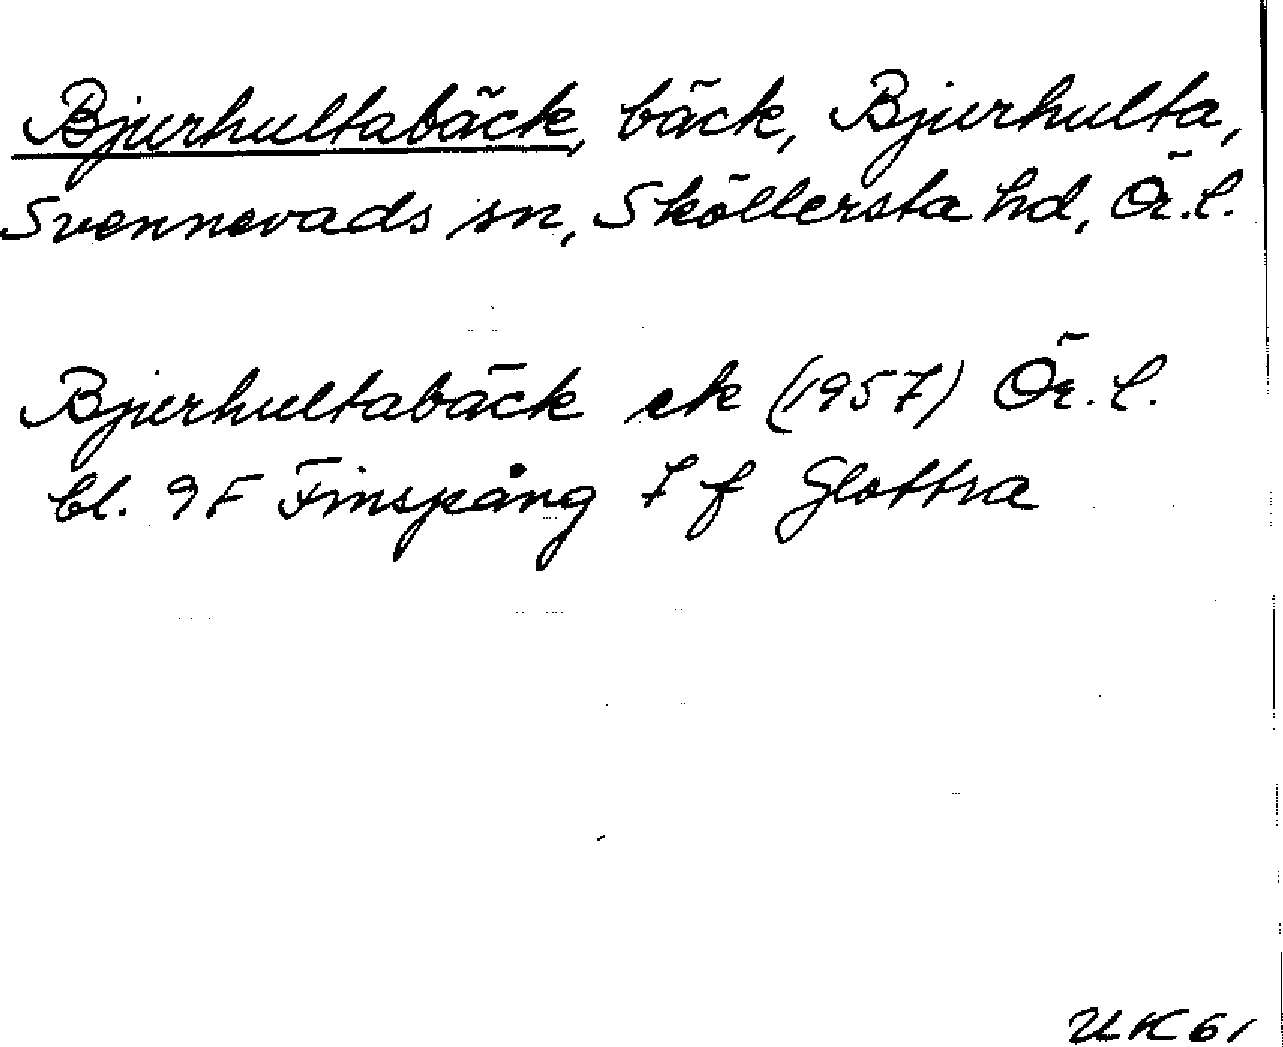 Bjurhultabäck, bäck, Bjurhulta,
Svennevads sn, Sköllersta hd, Ör.l.
Bjurhultabäck ek (1957) Ör.l.
bl. 9F Finspång 7 f Glottra
UK 61